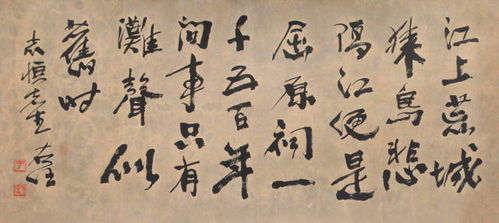 江上荒城
猿鳥悲
隔江便是
屈原祠一
千五百年
間事只有
灘聲似
舊时
先生 右任